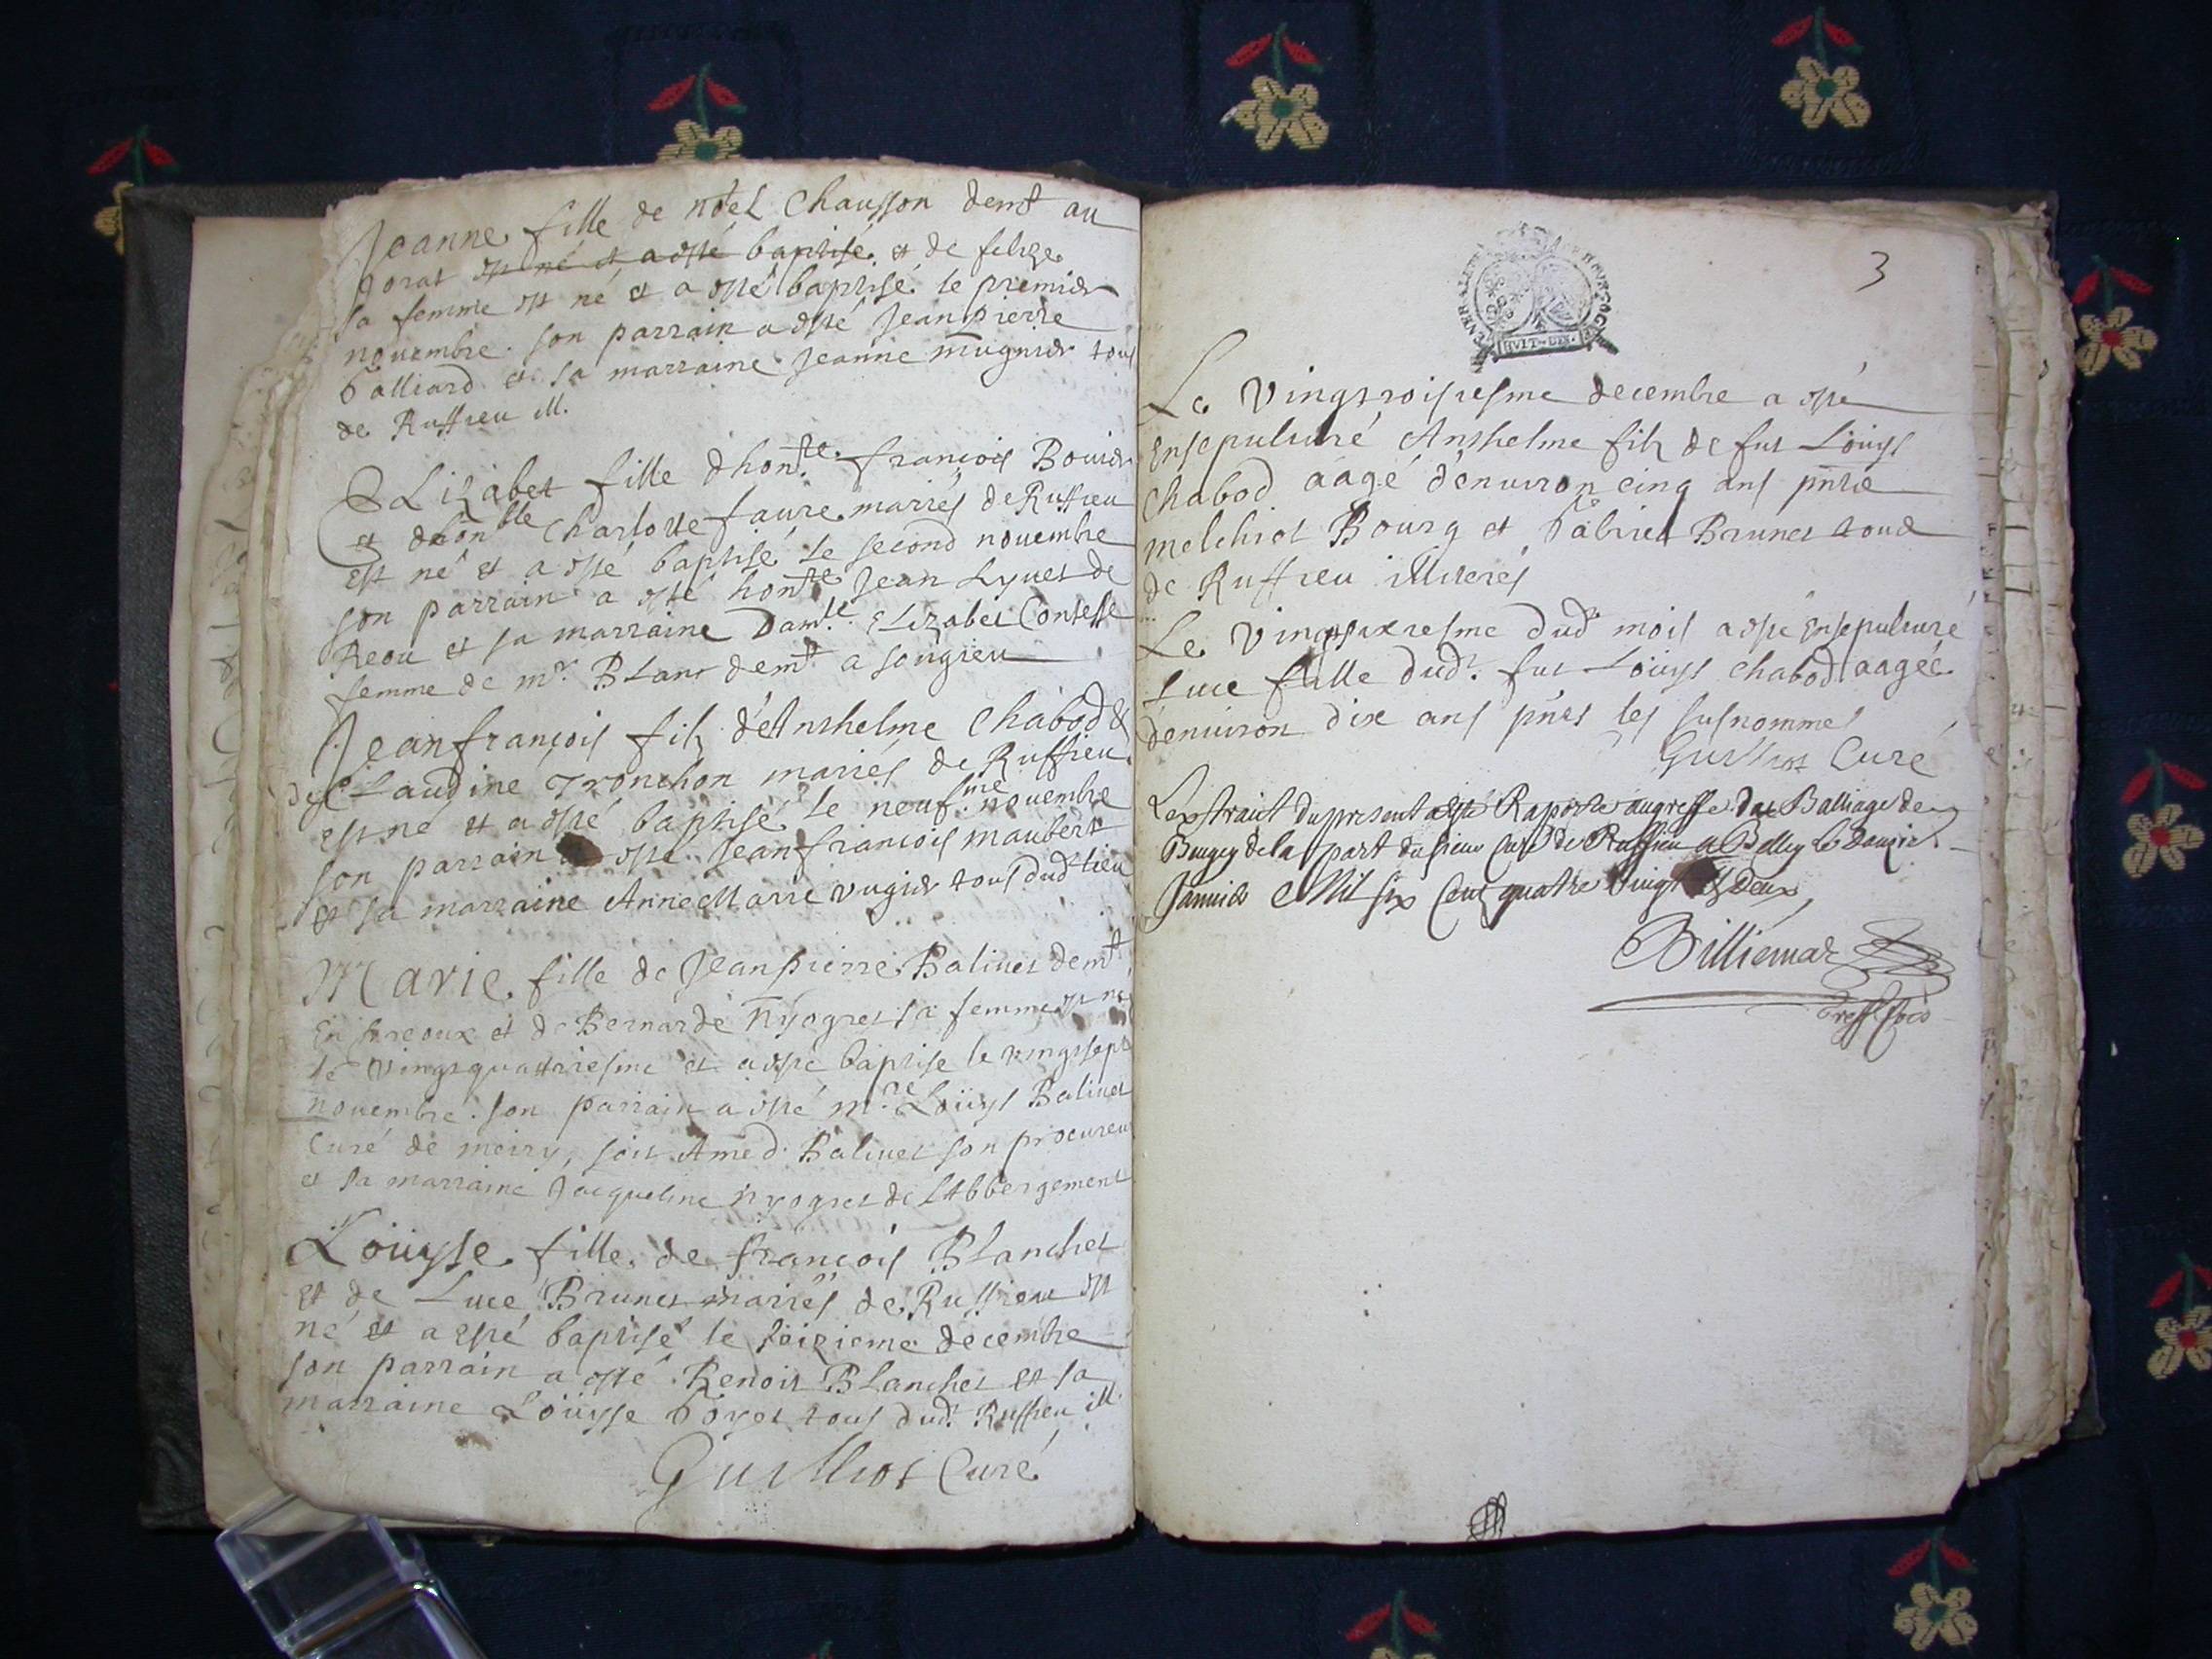 Jeanne fille de noel Chausson demt au
Jorat est né et a esté baptisé et de felize
sa femme est né et a esté baptisé le premier
nouembre. son parrain a esté Jeanpierre
Galliard et sa marraine Jeanne mugnier tous
de Ruffieu ill.
Elizabet fille d'honte. françois Bouier
et d'honble Charlotte faure mariés de Ruffieu
est né et a esté baptisé le second nouembre
son parrain a esté honte Jean Lyuet de
Reou et sa marraine Damlle. Elizabet Contesse
femme de mr. Blanc demt a songieu
Jeanfrançois filz d'Anthelme Chabod &
de Claudine Tronchon mariés de Ruffieu
est né et a esté baptisé le neufme nouembre
son parrain a esté Jeanfrancois maubert
et sa marraine AnneMarie vugier tous dudt lieu
Marie fille de Jeanpierre Baliuet demt
En et de Bernarde nyogret sa femme est né
le vingtquatriesme et a esté baptisé le vingtsept
nouembre. son parrain a esté mre Loüys Baliuet
Curé de meiry, soit Amed. Baliuet son procureur
et sa marraine Jacqueline nyogret de LAbbergement
Loüyse fille de françois Blanchet
et de Luce Brunet mariés de Ruffieu est
né et a esté baptisé le seizieme decembre
son parrain a esté Benoit Blanchet et sa
marraine Loüyse Goyet tous dudt Ruffieu ill.
Guilliot Curé
3
HVIT-DEN.
Le vingtroisiesme decembre a esté
Ensepulturé Anthelme filz de fut Loüys
Chabod aagé d'enuiron cinq ans pntz
melchiot Bourg et Gabriel Brunet tous
de Ruffieu illiterés
Le vingtsixiesme dudt mois a esté Ensepulturé
Luce fille dudt. fut Loüys Chabod aagée
d'enuiron dix ans pnts les susnommés
Guilliot Curé
Lextrait du present a esté Raporté au greffe du Balliage de
Bugey de la part du sieur Curé de Ruffieu a Belley le Douzie
Januier Mil six Cent quatre vingt et deux
Billiemaz